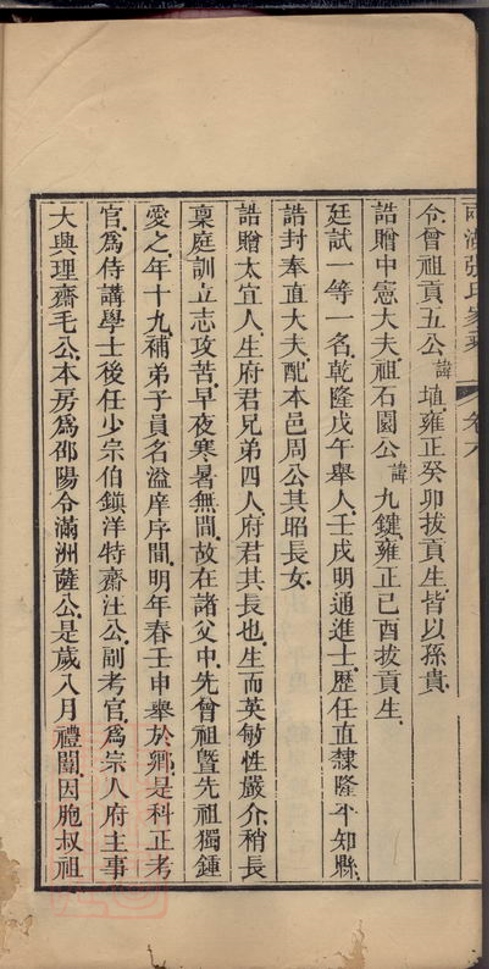 張氏家乘 卷六
令曾祖貢五公諱埴雍正癸卯拔貢生皆以孫貴
誥贈中憲大夫祖石園公諱九鍵雍正己酉拔貢生
廷試一等一名乾隆戊午舉人壬戌明通進士歷任直隸隆平知縣
誥封奉直大夫配本邑周公其昭長女
誥贈太宜人生府君兄弟四人府君其長也生而英敏性嚴介稍長
稟庭訓立志攻苦早夜寒暑無間故在諸父中先曾祖暨先祖獨鍾
愛之年十九補弟子員名溢庠序間明年春壬申舉於鄉是科正考
官為侍講學士後任少宗伯鎮洋特齋汪公副考官為宗人府主事
大興理齋毛公本房為邵陽令滿洲薩公是歲八月禮闈因胞叔祖